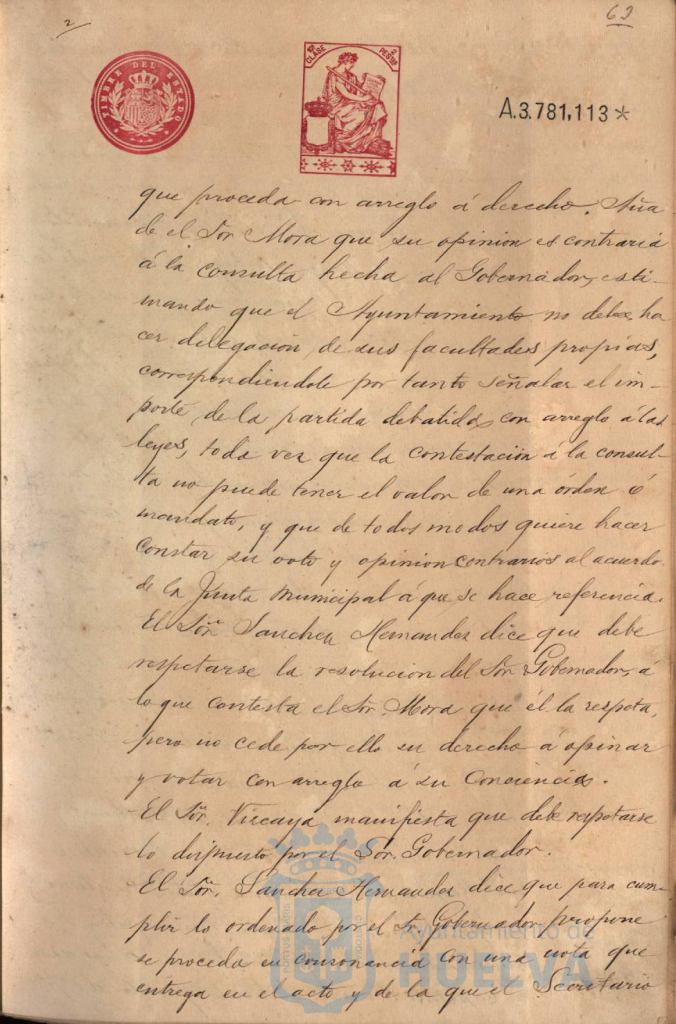 2
63
TIMBRE DEL ESTADO
10ª CLASE 2 PESTAS
A.3.781,113*
que proceda con arreglo á derecho. Aña
de el Sor. Mora que su opinion es contraria
á la consulta hecha al Gobernador, esti-
mando que el Ayuntamiento no debe ha
cer delegacion de sus facultades propias,
correspondiendole por tanto señalar el im-
porte de la partida debatida con arreglo á las
leyes, toda vez que la contestacion á la consul-
ta no puede tener el valor de una órden ó
mandato, y que de todos modos quiere hacer
constar su voto y opinion contrarios al acuerdo
de la Junta municipal á que se hace referencia.
El Sor. Sanchez Hernandez dice que debe
respetarse la resolucion del Sor. Gobernador, á
lo que contesta el Sor. Mora que él la respeta,
pero no cede por ello su derecho á opinar
y votar con arreglo á su Conciencia.
El Sor. Vizcaya manifiesta que debe respetarse
lo dispuesto por el Sor. Gobernador.
El Sor. Sanchez Hernandez dice que para cum-
plir lo ordenado por el Sr. Gobernador propone
se proceda en consonancia con una nota que
entrega en el acto y de la que el Secretario
Ayuntamiento de
HUELVA